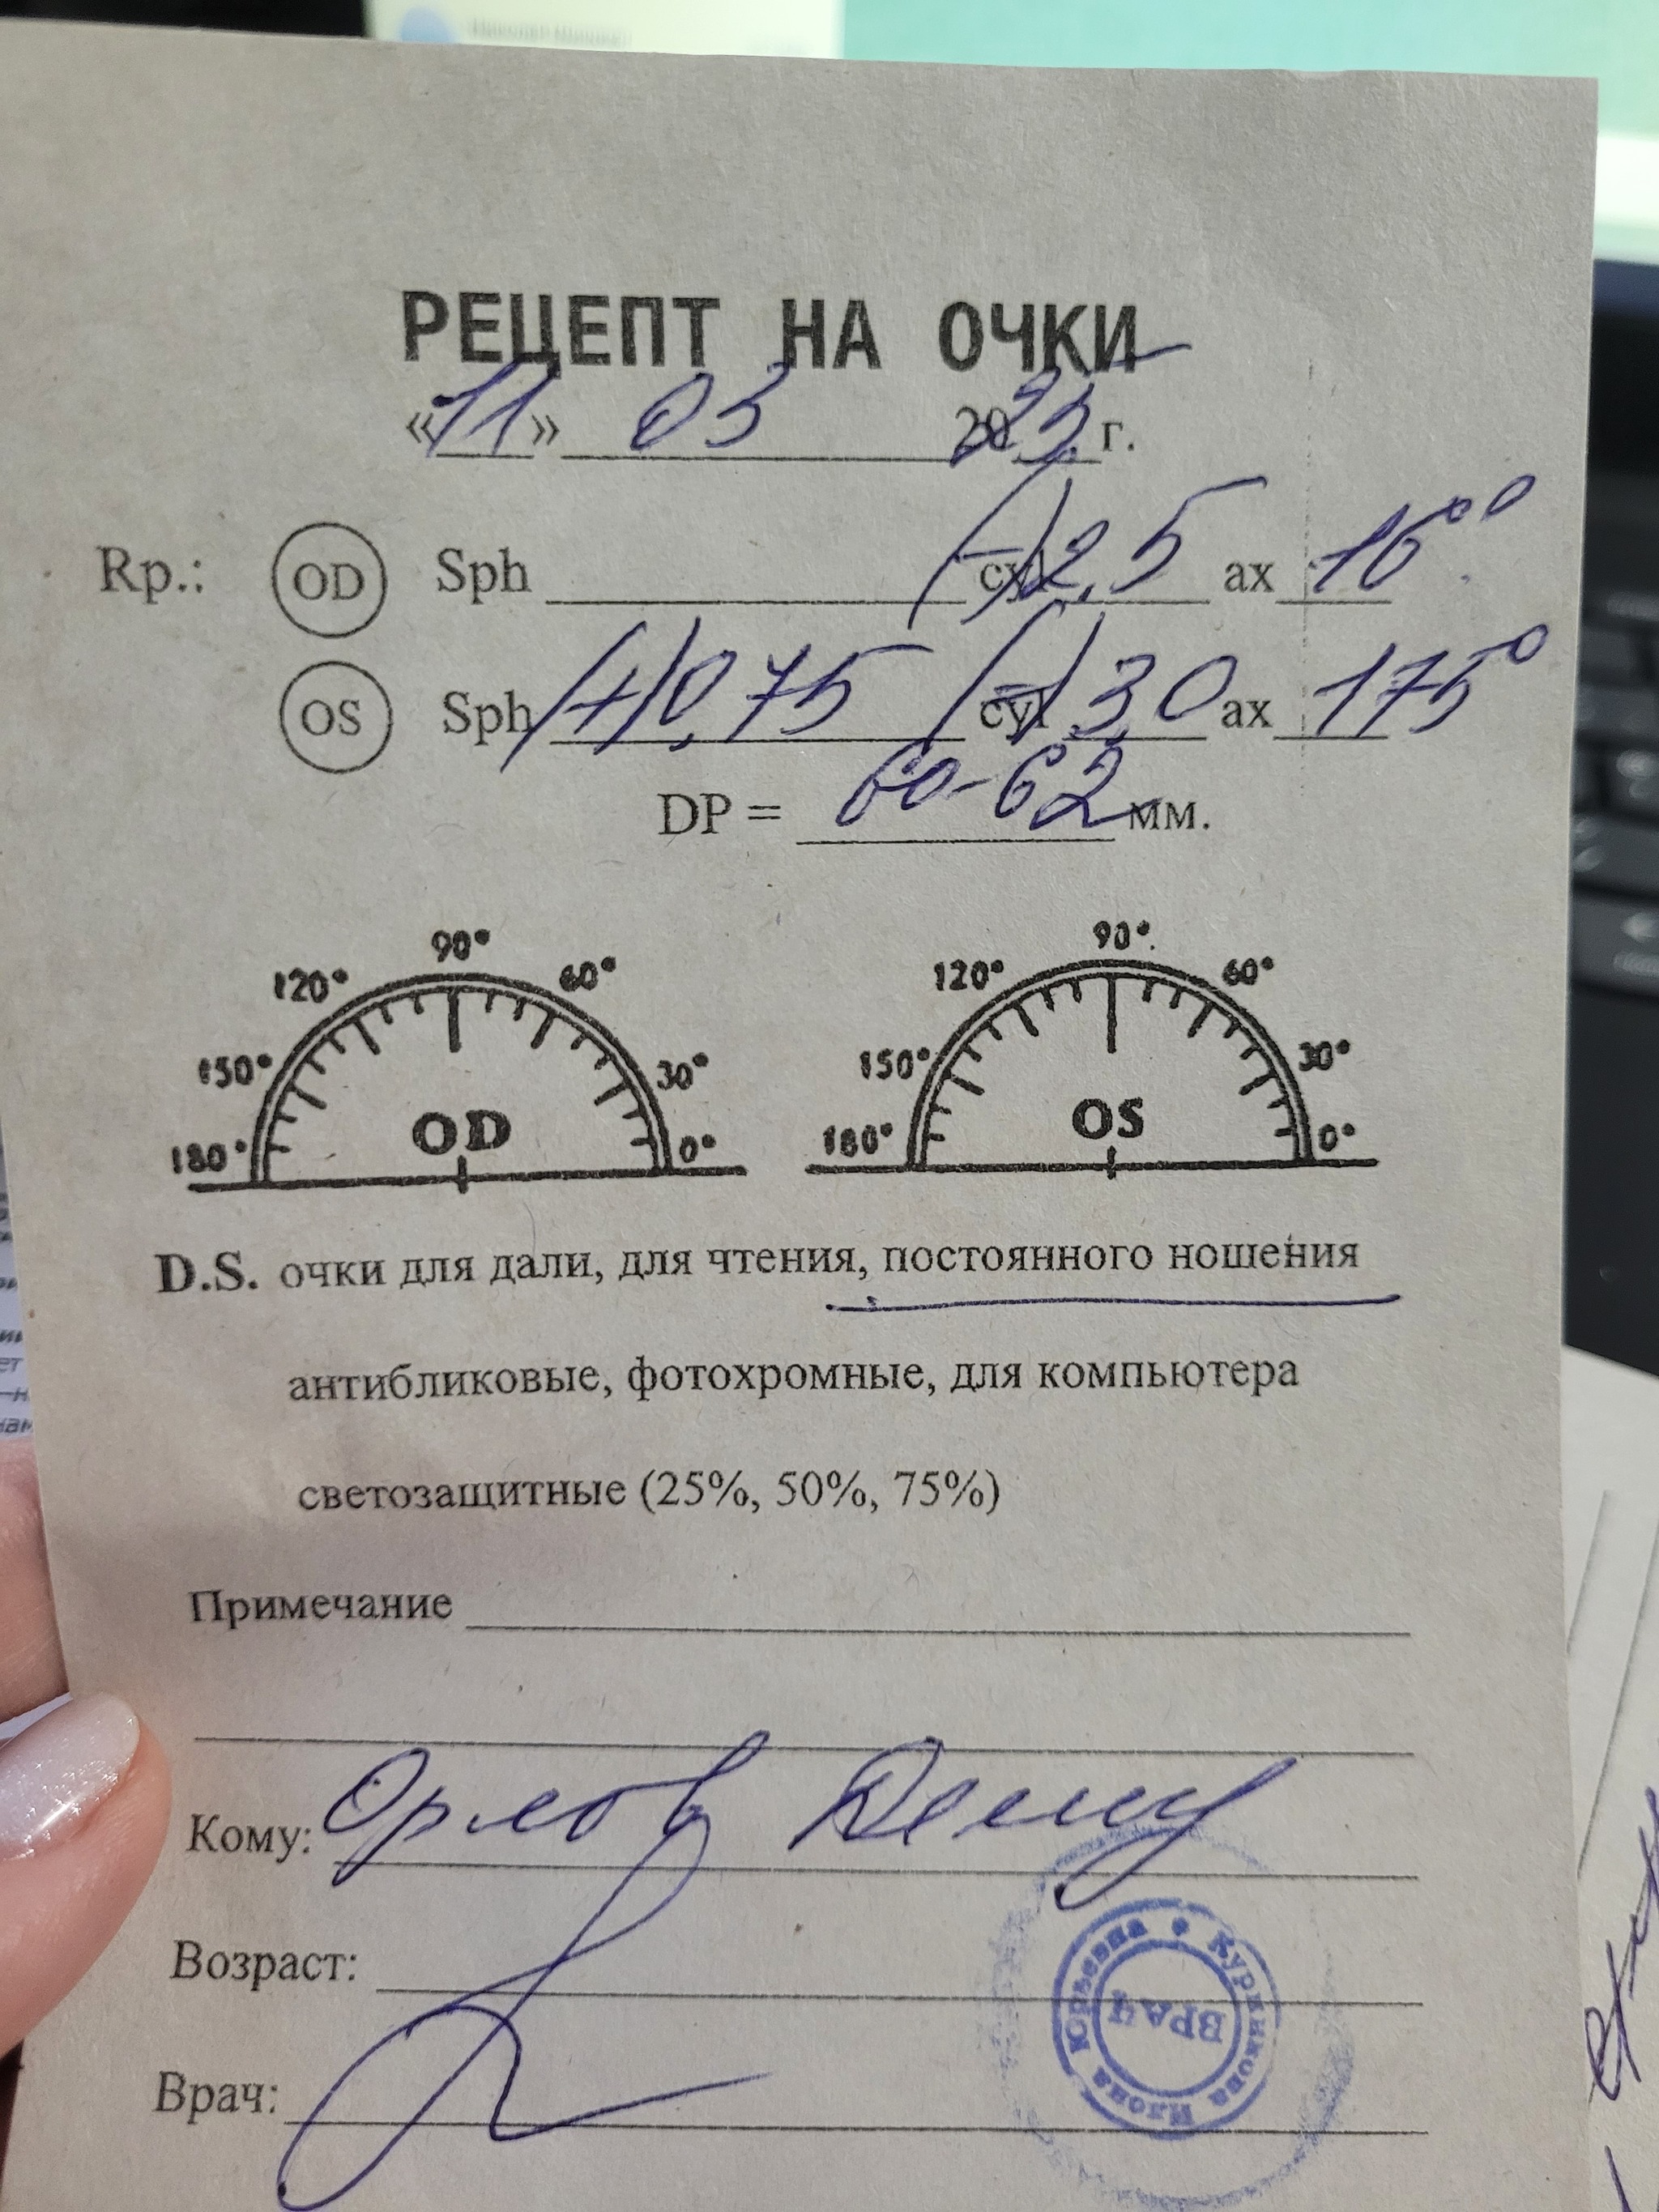 РЕЦЕПТ НА ОЧКИ
«11» 03 2025 г.
Rp.: OD Sph cyl (-)2,5 ax
OS Sph (+)0,75 cyl (-)3,0 ax 175°
DP = 60-62 мм.
90° 90°
120° 60° 120° 60°
150° 30° 150° 30°
OD OS
180° 0° 180° 0°
D.S. очки для дали, для чтения, постоянного ношения
антибликовые, фотохромные, для компьютера
светозащитные (25%, 50%, 75%)
Примечание
Кому: Орлов
Возраст:
Врач:
Курникова Илона Юрьевна
ВРАЧ